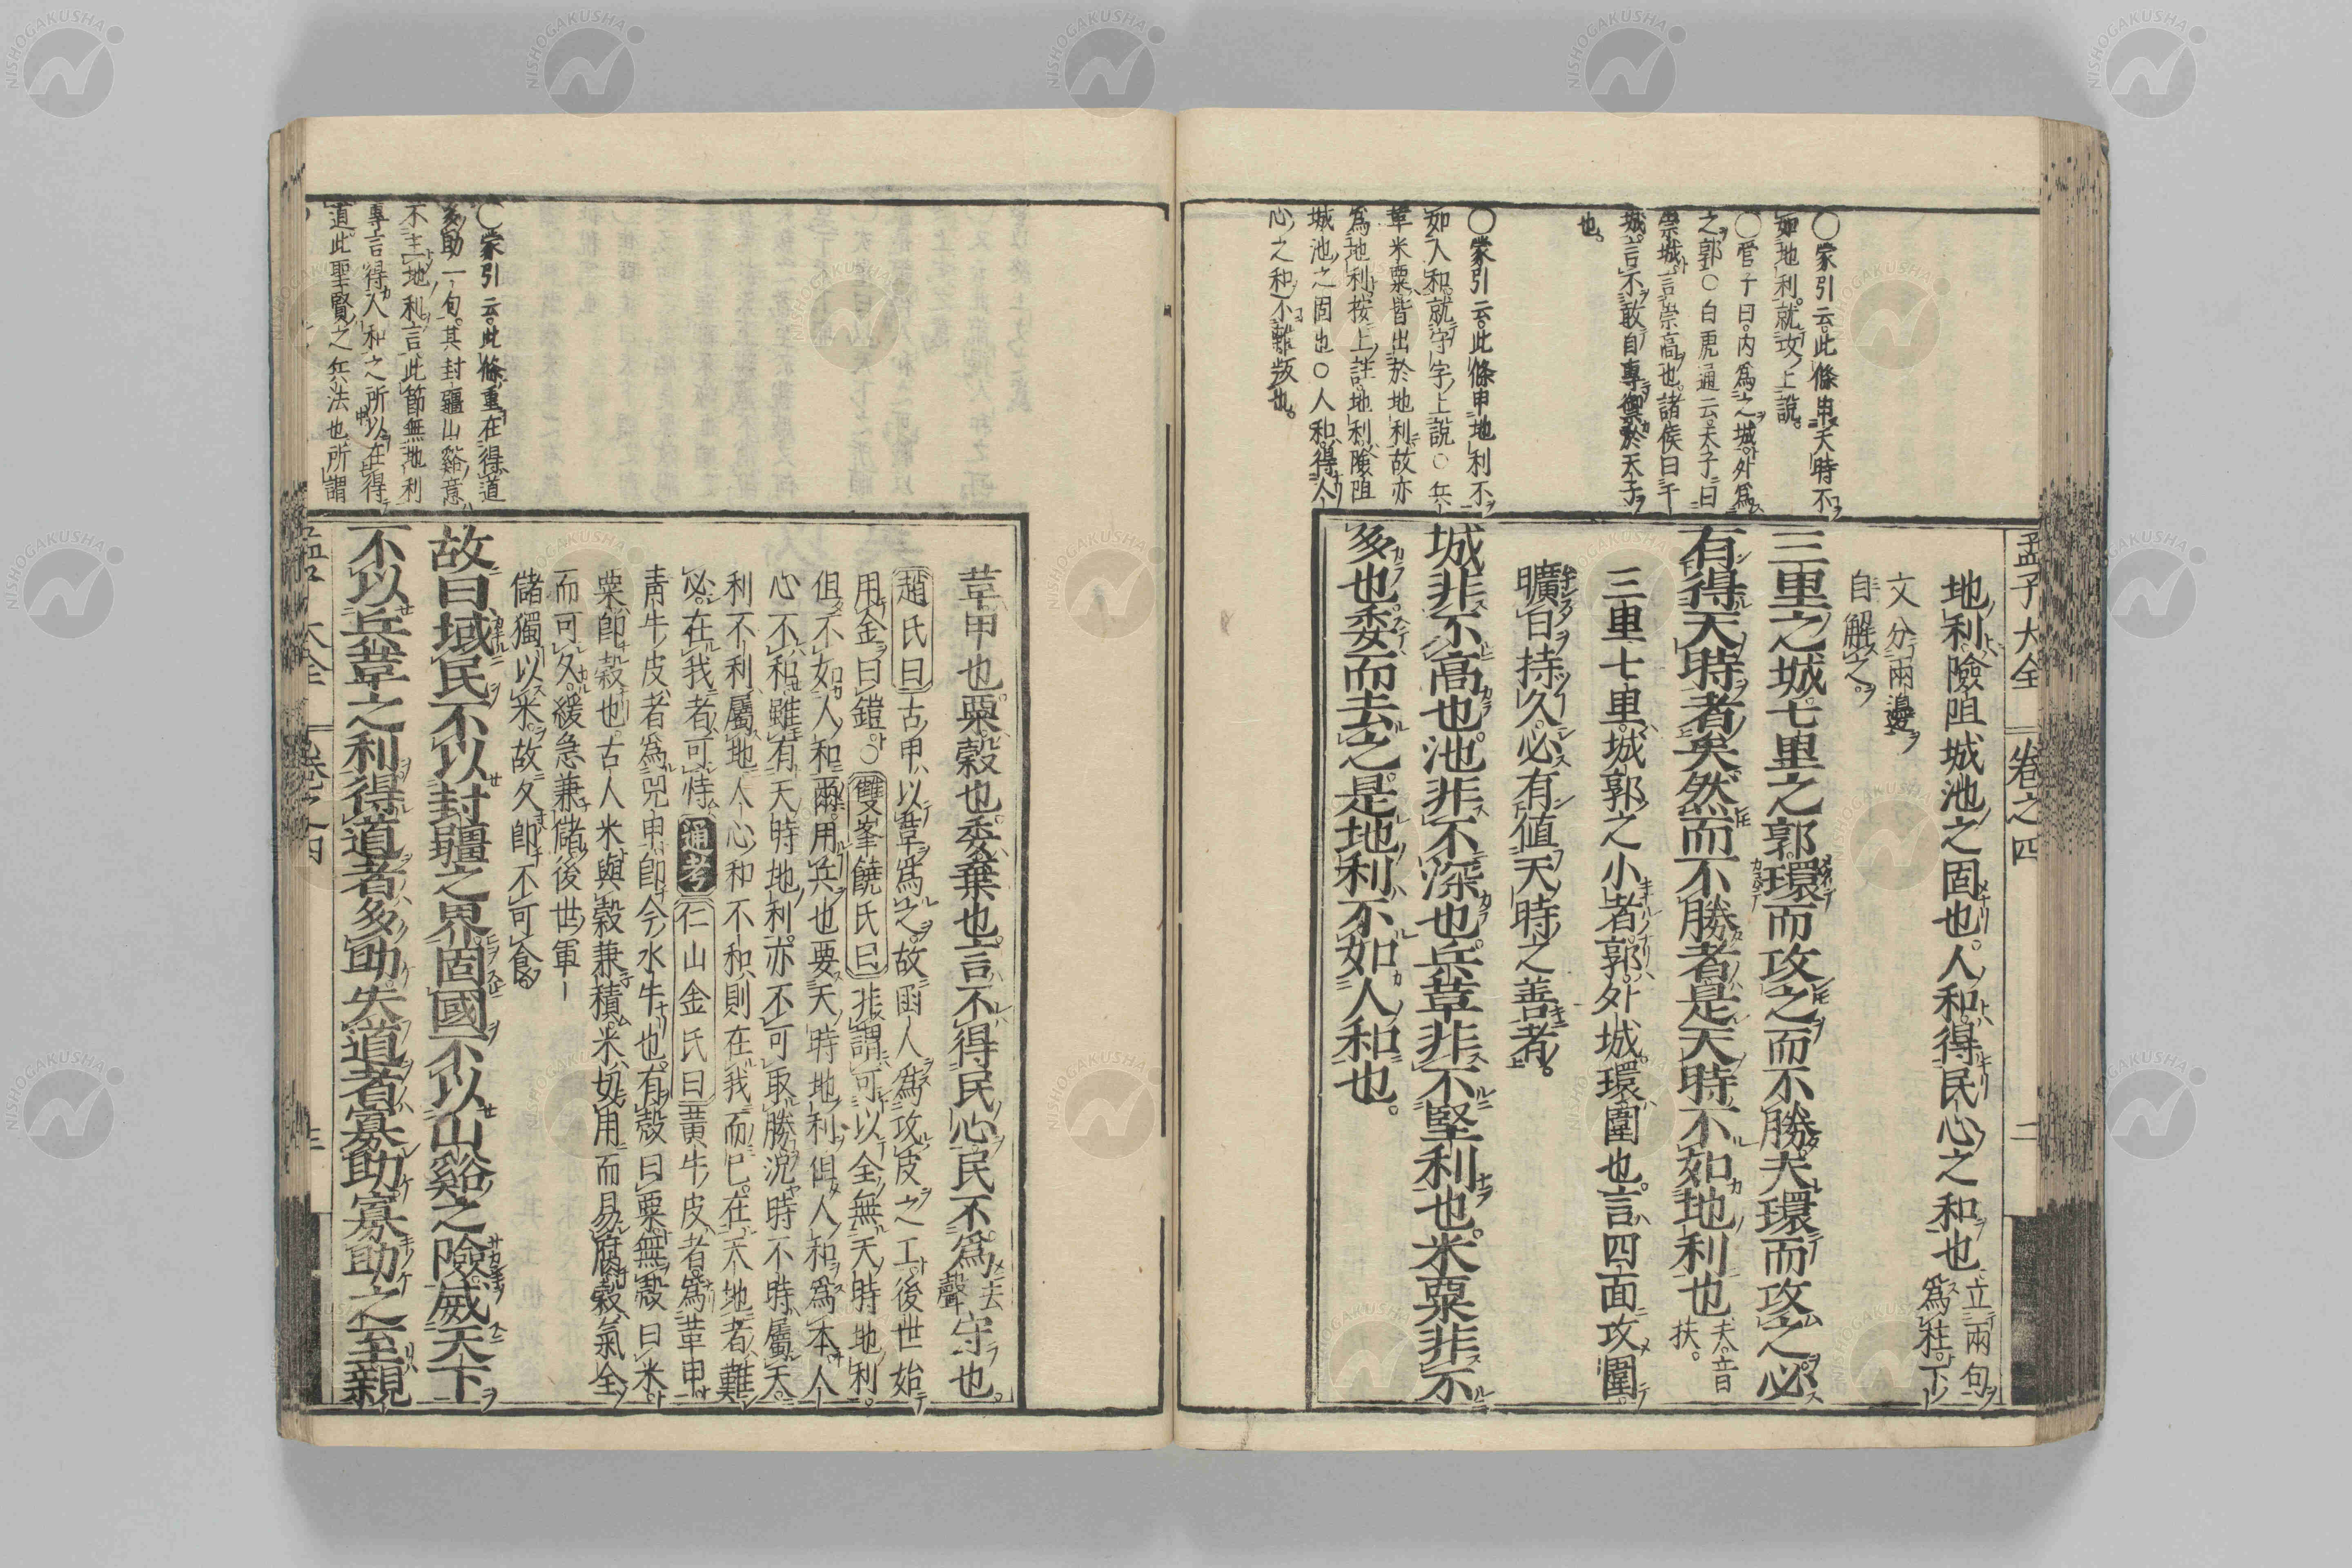 孟子大全 卷之四 二
○蒙引云此條申天時不
如地利就攻上說
○管子曰內爲之城外爲
之郭○白虎通云天子曰
崇城言崇高也諸侯曰干
城言不敢自專禦於天子
也
○蒙引云此條申地利不
如人和就守字上說○兵
革米粟皆出於地利故亦
爲地利按上註地利險阻
城池之固也○人和得人
心之和不離叛也
地利險阻城池之固也人和得民心之和也立兩句
爲柱下
文分兩邊
自解之
三里之城七里之郭環而攻之而不勝夫環而攻之必
有得天時者矣然而不勝者是天時不如地利也夫音
扶
三里七里城郭之小者郭外城環圍也言四面攻圍
曠日持久必有値天時之善者
城非不高也池非不深也兵革非不堅利也米粟非不
多也委而去之是地利不如人和也
○蒙引云此條重在得道
多助一句其封疆山谿意
不主地利言此節無地利
專言得人和之所以在得
道此聖賢之兵法也所謂
革甲也粟穀也委棄也言不得民心民不爲去
聲守也
趙氏曰古甲以革爲之故函人爲攻皮之工後世始
用金曰鎧○雙峯饒氏曰非謂可以全無天時地利
但不如人和爾用兵也要天時地利但人和爲本人
心不和雖有天時地利亦不可取勝況時不時屬天
利不利屬地人心和不和則在我而已在天地者難
必在我者可恃通考仁山金氏曰黃牛皮者爲革甲
靑牛皮者爲兕甲卽今水牛也有殼曰粟無殼曰米
粟卽穀也古人米與穀兼積米切用而易腐穀氣全
而可久緩急兼儲後世軍
儲獨以米故久卽不可食
故曰域民不以封疆之界固國不以山谿之險威天下
不以兵革之利得道者多助失道者寡助寡助之至親